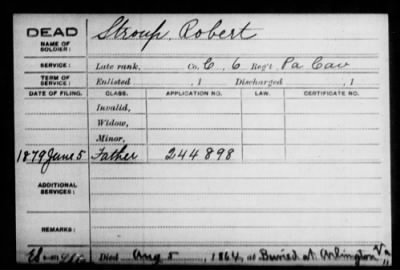 DEAD
NAME OF SOLDIER: Stroup, Robert
SERVICE: Late rank, Co. C, 6 Reg't Pa Cav
TERM OF SERVICE: Enlisted , 1 Discharged , 1
DATE OF FILING. CLASS. APPLICATION NO. LAW. CERTIFICATE NO.
Invalid,
Widow,
Minor,
1879 June 5 Father 244898
ADDITIONAL SERVICES:
REMARKS:
Died Aug 5, 1864, at Buried at Arlington Va